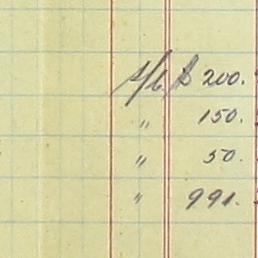 $ 200.
" 150.
" 50.
" 991.